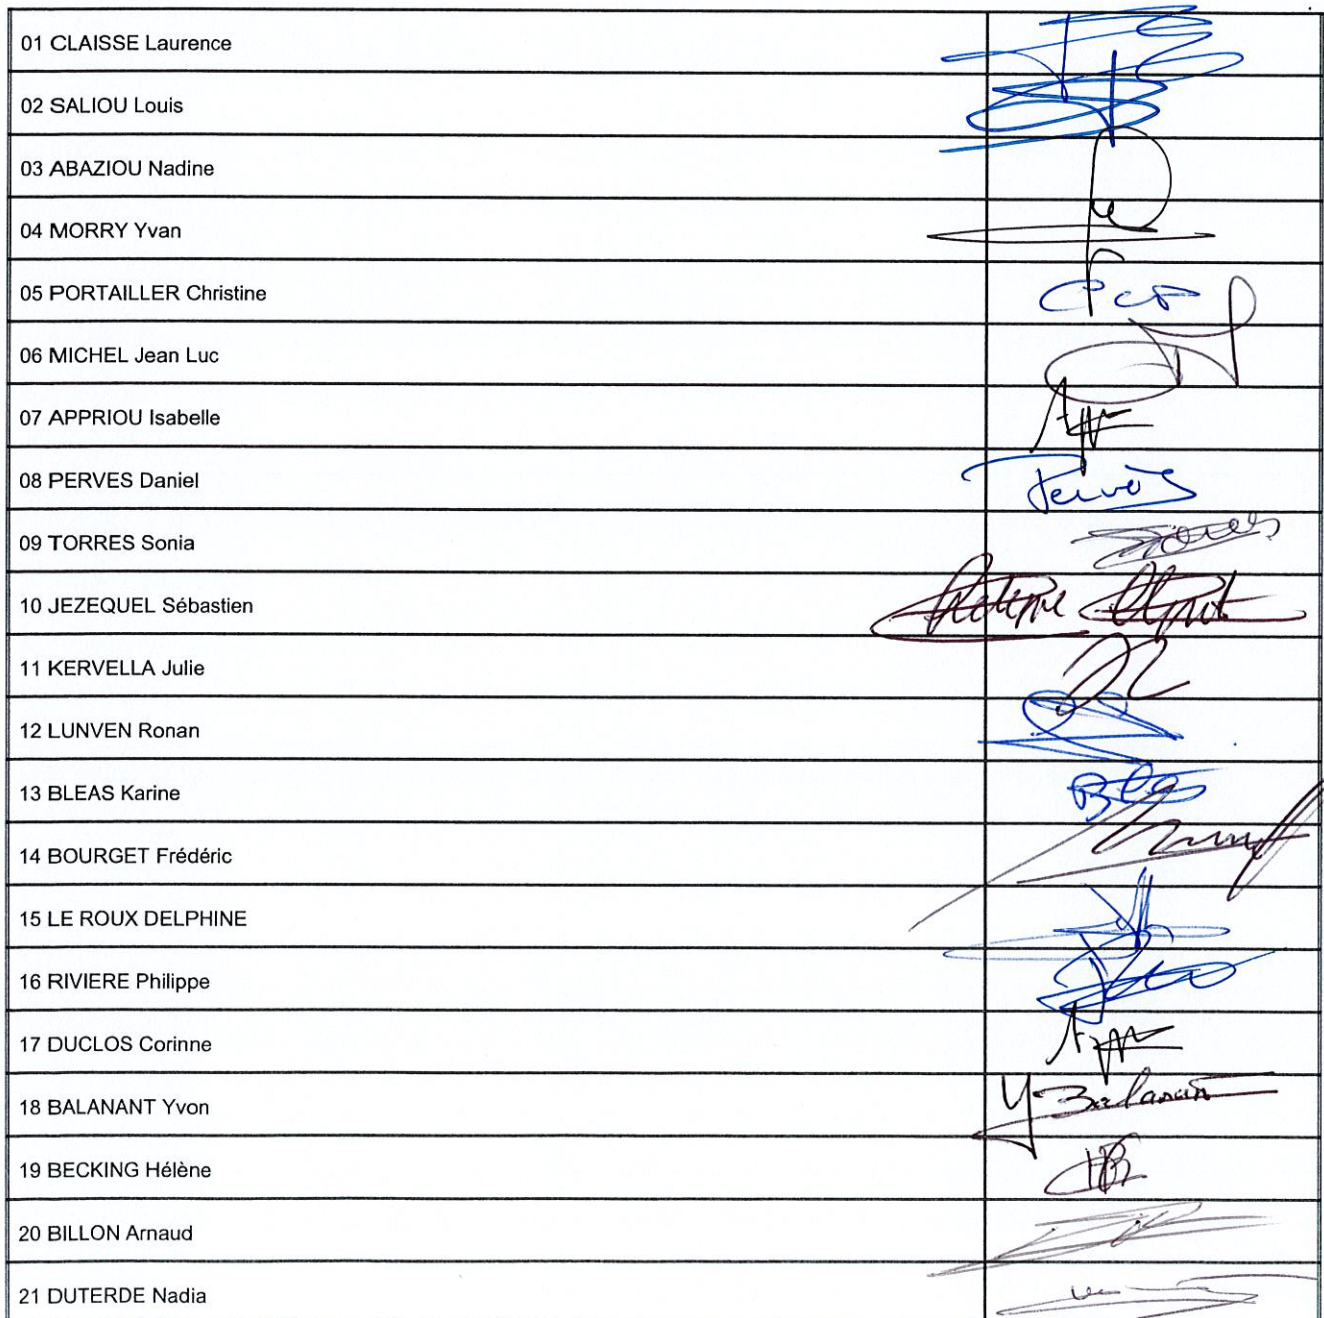 01 CLAISSE Laurence
02 SALIOU Louis
03 ABAZIOU Nadine
04 MORRY Yvan
05 PORTAILLER Christine
06 MICHEL Jean Luc
07 APPRIOU Isabelle
08 PERVES Daniel
Pervès
09 TORRES Sonia
10 JEZEQUEL Sébastien
11 KERVELLA Julie
12 LUNVEN Ronan
13 BLEAS Karine
14 BOURGET Frédéric
15 LE ROUX DELPHINE
16 RIVIERE Philippe
17 DUCLOS Corinne
18 BALANANT Yvon
Y Balanant
19 BECKING Hélène
20 BILLON Arnaud
21 DUTERDE Nadia